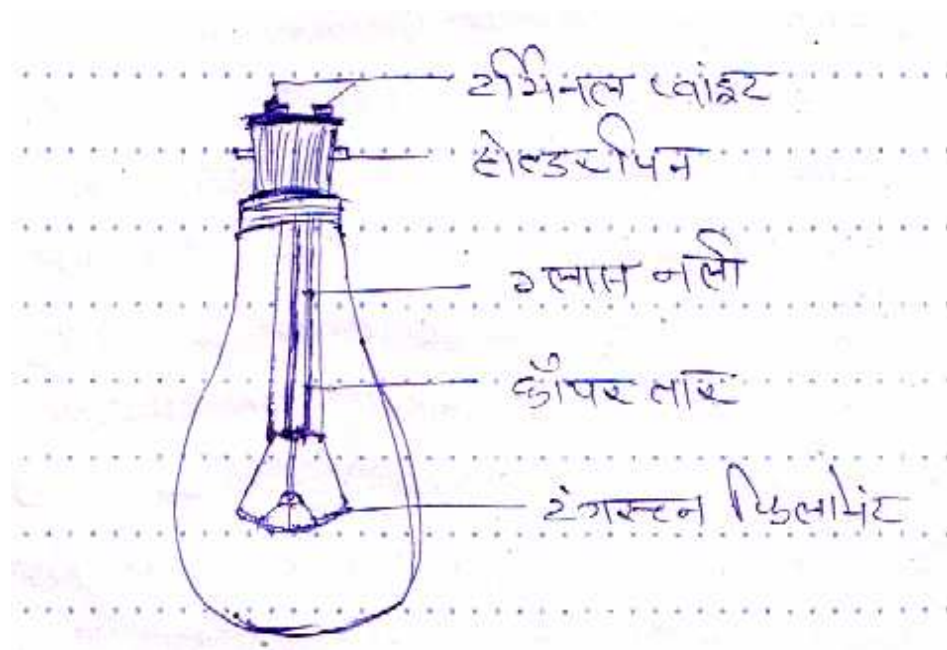 टर्मिनल प्वांइट
होल्डर पिन
ग्लास नली
कॉपर तार
टंगस्टन फिलामेंट